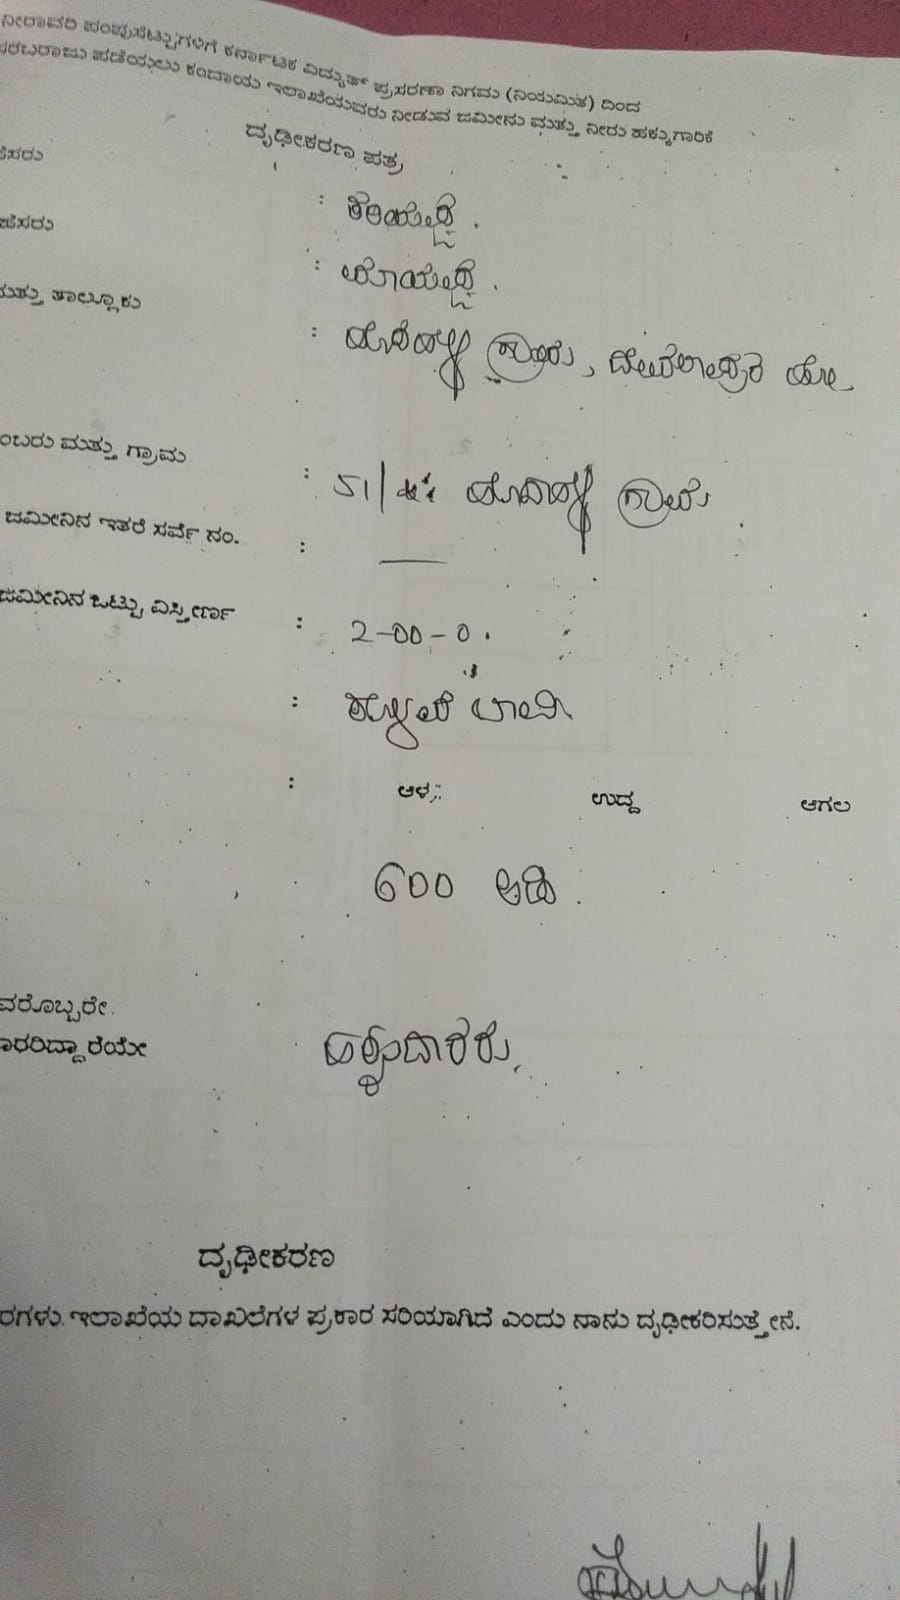 ನೀರಾವರಿ ಪಂಪುಸೆಟ್ಟುಗಳಿಗೆ ಕರ್ನಾಟಕ ವಿದ್ಯುತ್ ಪ್ರಸರಣಾ ನಿಗಮ (ನಿಯಮಿತ) ದಿಂದ
ಸರಬರಾಜು ಪಡೆಯಲು ಕಂದಾಯ ಇಲಾಖೆಯವರು ನೀಡುವ ಜಮೀನು ಮತ್ತು ನೀರು ಹಕ್ಕುಗಾರಿಕೆ
ದೃಢೀಕರಣ ಪತ್ರ
ಹೆಸರು :
ಹೆಸರು :
ಮತ್ತು ತಾಲ್ಲೂಕು : ಗ್ರಾಮ,
ಂಬರು ಮತ್ತು ಗ್ರಾಮ : 51/ ಗ್ರಾಮ
ಜಮೀನಿನ ಇತರೆ ಸರ್ವೆ ನಂ. : —
ಜಮೀನಿನ ಒಟ್ಟು ವಿಸ್ತೀರ್ಣ : 2-00-0.
: ಕೊಳವೆ ಬಾವಿ
: ಆಳ ಉದ್ದ ಅಗಲ
600 ಅಡಿ.
ವರೊಬ್ಬರೇ.
ಾರರಿದ್ದಾರೆಯೇ ಹಕ್ಕುದಾರರು.
ದೃಢೀಕರಣ
ರಗಳು ಇಲಾಖೆಯ ದಾಖಲೆಗಳ ಪ್ರಕಾರ ಸರಿಯಾಗಿದೆ ಎಂದು ನಾನು ದೃಢೀಕರಿಸುತ್ತೇನೆ.